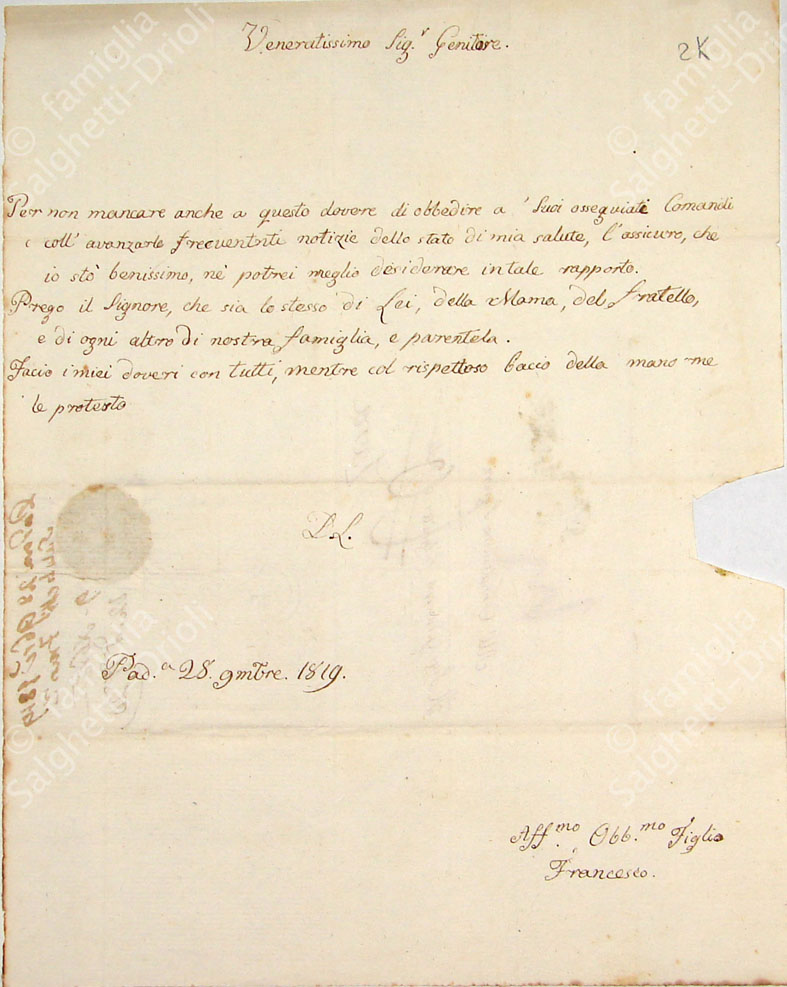 Veneratissimo Sig.r Genitore.
2K
Per non mancare anche a questo dovere di obbedire a' Suoi ossequiati Comandi
coll' avanzarle frecuentriti notizie dello stato di mia salute, l'assicuro, che
io stò benissimo, nè potrei meglio desiderare in tale rapporto.
Prego il Signore, che sia lo stesso di Lei, della Mama, del fratello,
e di ogni altro di nostra famiglia, e parentela.
Facio i miei doveri con tutti, mentre col rispettoso baccio della mano me
le protesto
D. L.
Pad.a 28. 9mbre. 1819.
Aff.mo Obb.mo Figlio
Francesco.
© famiglia
Salghetti-Drioli
© famiglia
Salghetti-Drioli
© famiglia
Salghetti-Drioli
© famiglia
Salghetti-Drioli